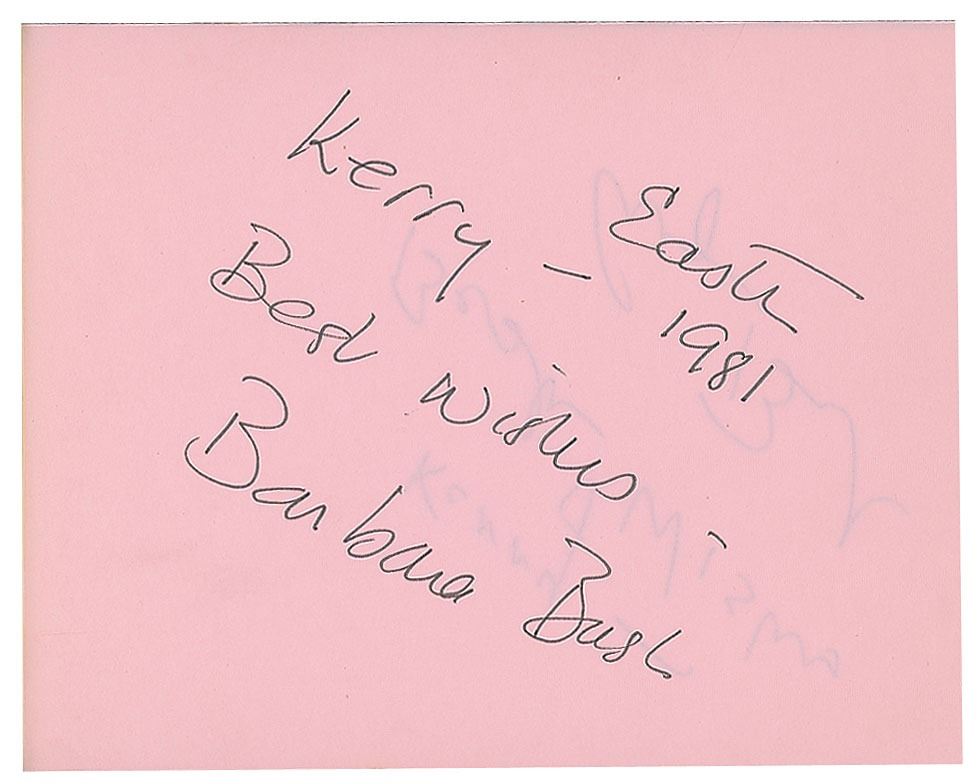 Kerry –
Easter
1981
Best Wishes
Barbara Bush